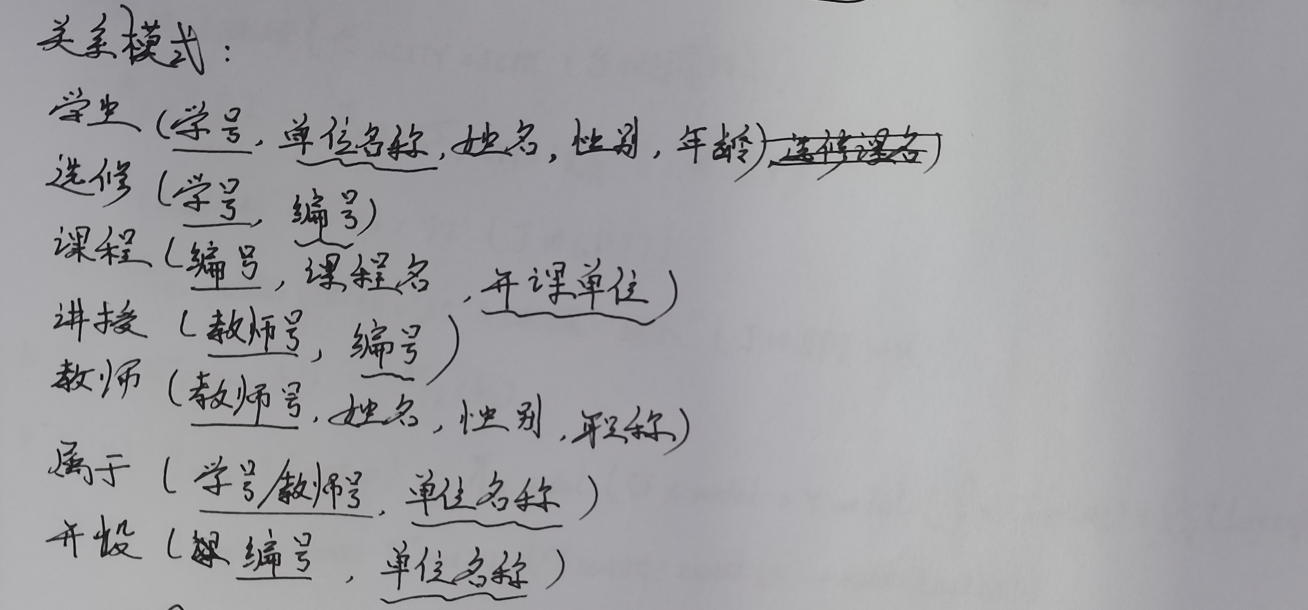 关系模式：
学生（学号，单位名称，姓名，性别，年龄）选修课名）
选修（学号，编号）
课程（编号，课程名，开课单位）
讲授（教师号，编号）
教师（教师号，姓名，性别，职称）
属于（学号/教师号，单位名称）
开设（编号，单位名称）